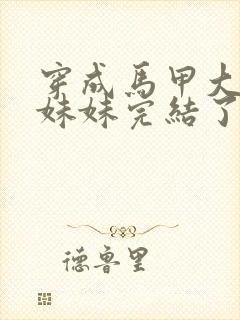 穿成馬甲大
妹妹完結了
德魯里